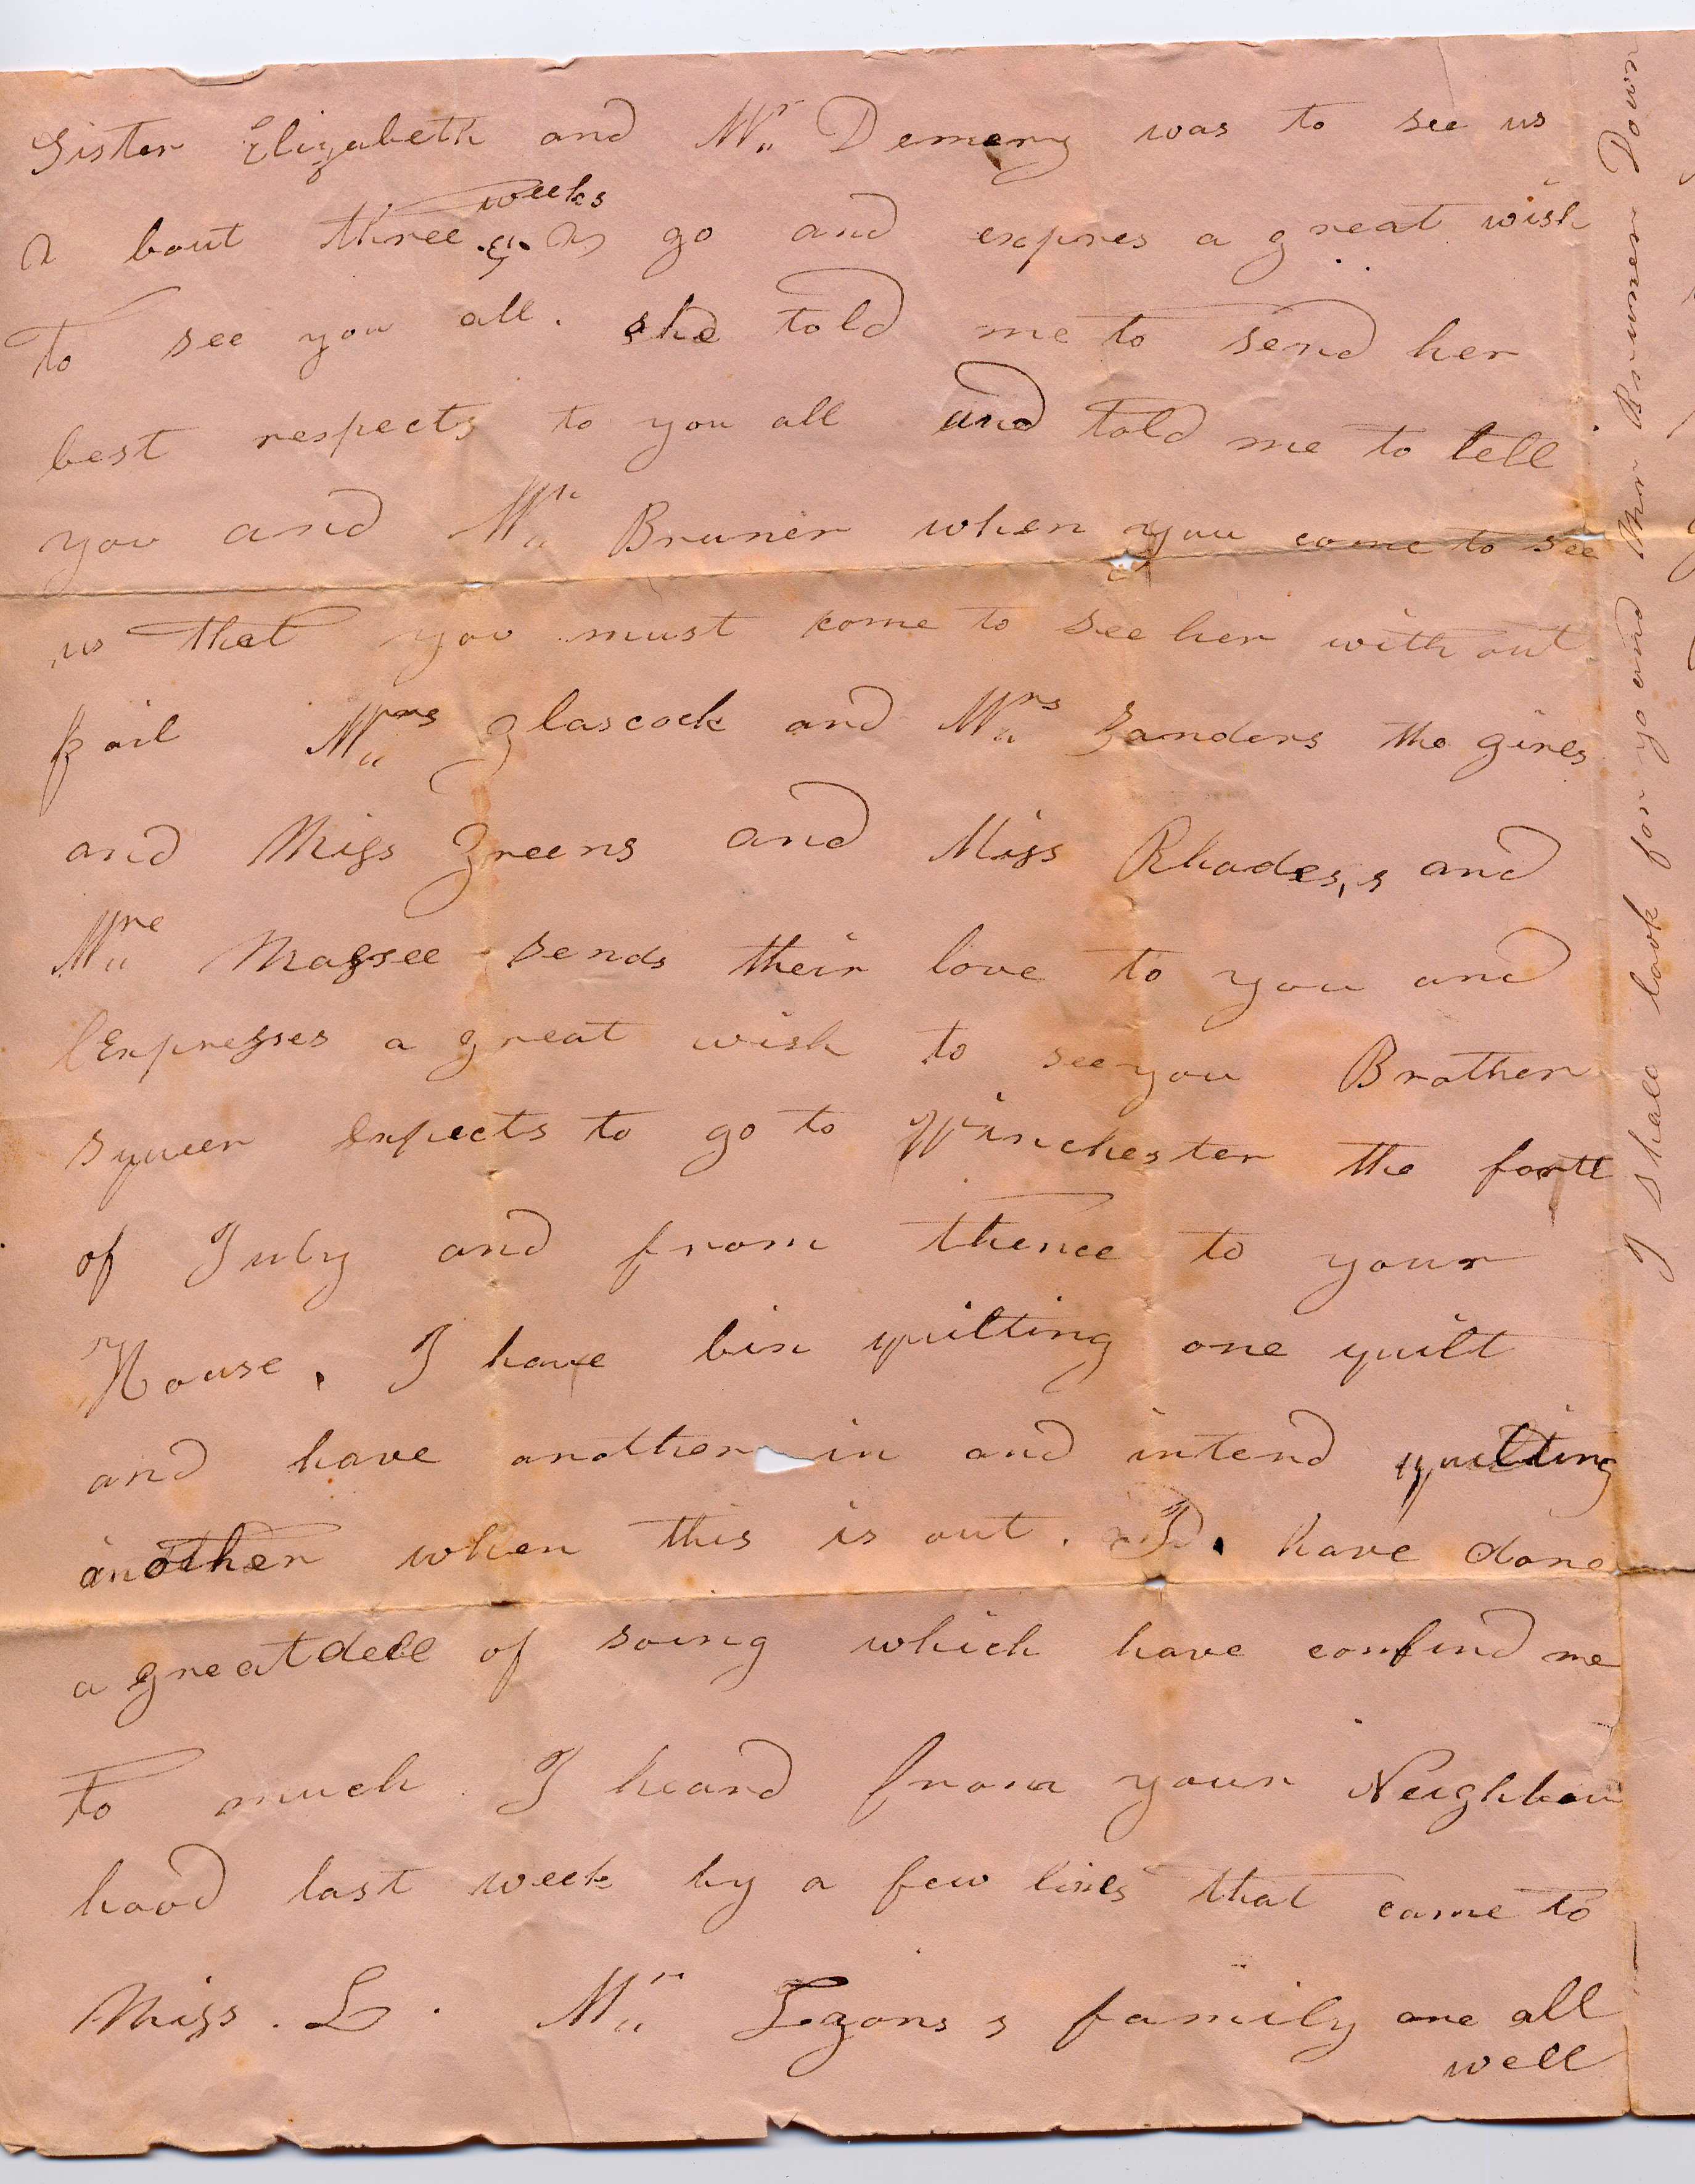 Sister Elizabeth and Mr Demery was to see us
a bout three weeks a go and expres a great wish
to see you all. she told me to send her
best respects to you all and told me to tell
you and Mr Bruner when you come to see
us that you must come to see her with out
fail Mrs Glascock and Mrs Sanders the girls
and Miss Greens and Miss Rhodes,s and
Mrs Magsee sends their love to you and
Expresses a great wish to see you Brother
Squier Expects to go to Winchester the forth
of July and from thence to your
House. I have bin quilting one quilt
and have another in and intend quilting
another when this is out. I have done
a great dell of soing which have confind me
to much I heard from your Neighbour
hood last week by a few lines that came to
Miss. L. Mr s family are all
well
I shall look for yo and Mr Brunner Down